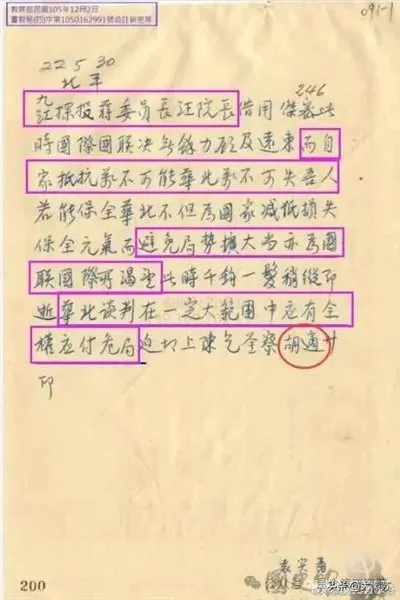 教育部民國105年12月2日
臺教秘(四)字第1050162991號函註銷密等
091-1
22 5 30
北平
246
九江探投蔣委員長汪院長借用此
時國際國联决無餘力顧及遠東而自
家抵抗萬不可能華北萬不可失吾人
若能保全華北不但為國家減抵損失
保全元氣而避免局勢擴大尚亦為國
联國際所渴望此時千鈞一髮稍縱即
逝華北谈判在一定大範圍中应有全
權应付危局迫切上陳乞鉴察胡適卅
印
200